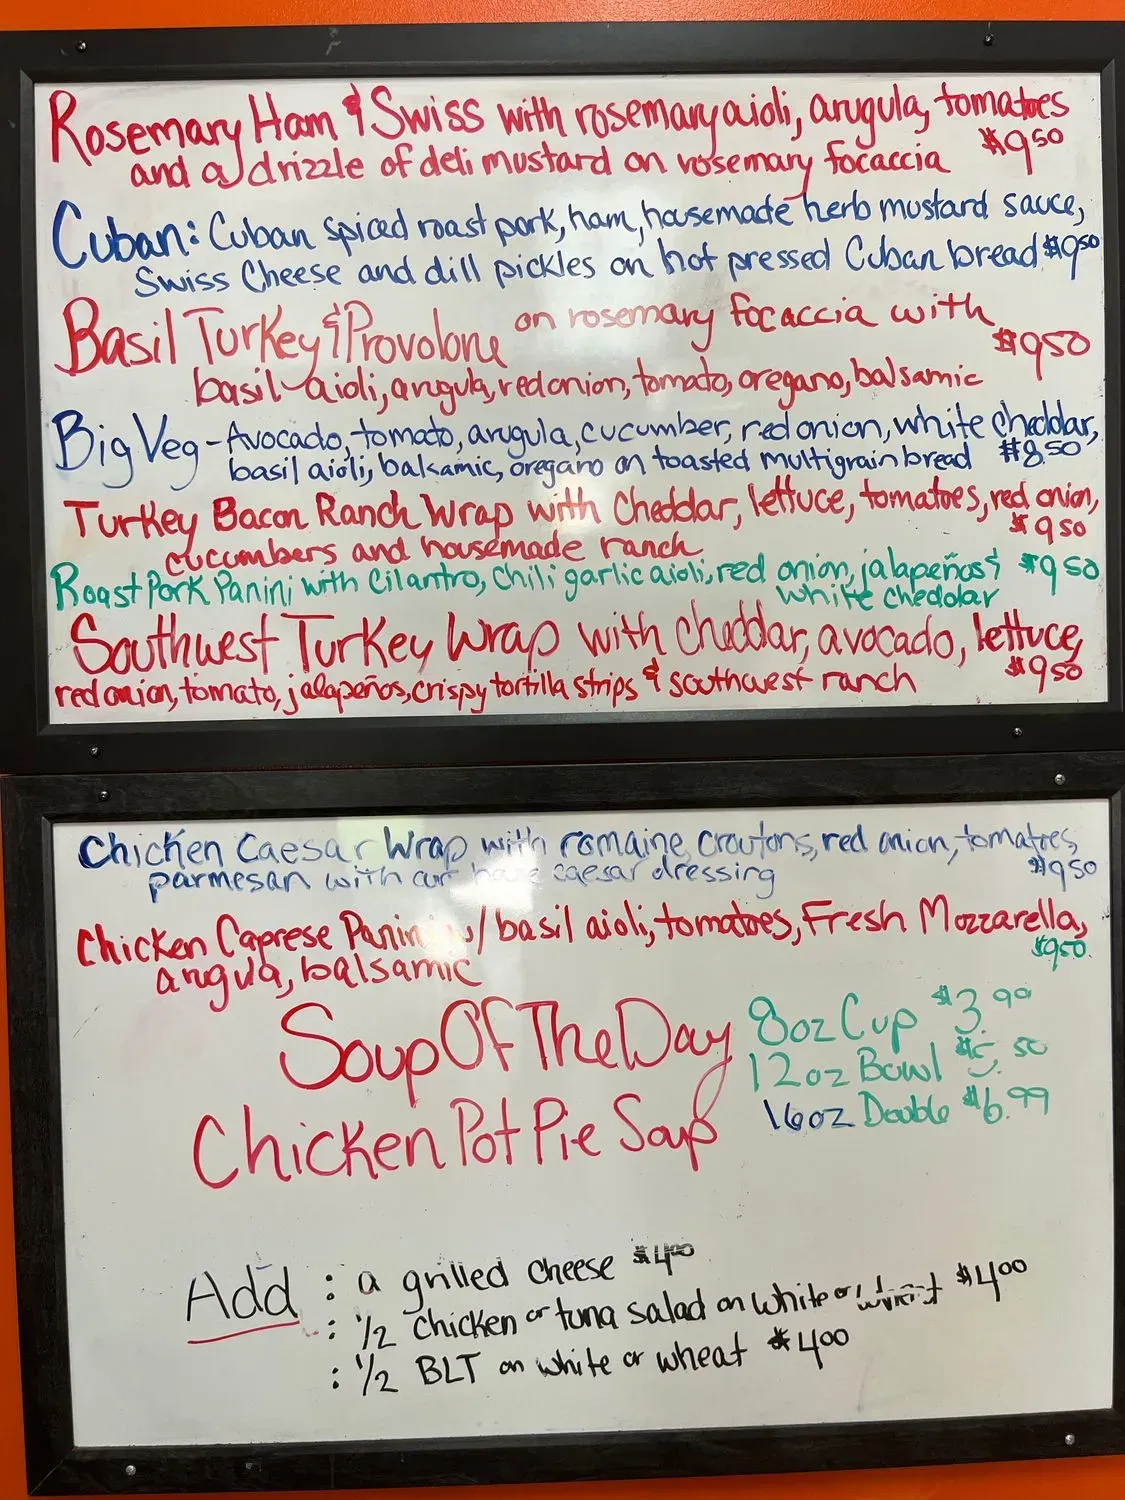 Rosemary Ham & Swiss with rosemary aioli, arugula, tomatoes
and a drizzle of deli mustard on rosemary focaccia $9.50
Cuban: Cuban spiced roast pork, ham, housemade herb mustard sauce,
Swiss Cheese and dill pickles on hot pressed Cuban bread $9.50
Basil Turkey & Provolone on rosemary focaccia with
basil aioli, arugula, red onion, tomato, oregano, balsamic $9.50
Big Veg - Avocado, tomato, arugula, cucumber, red onion, white cheddar,
basil aioli, balsamic, oregano on toasted multigrain bread $8.50
Turkey Bacon Ranch Wrap with Cheddar, lettuce, tomatoes, red onion,
cucumbers and housemade ranch $9.50
Roast Pork Panini with Cilantro, Chili garlic aioli, red onion, jalapeños & $9.50
white cheddar
Southwest Turkey Wrap with cheddar, avocado, lettuce,
red onion, tomato, jalapeños, crispy tortilla strips & southwest ranch $9.50
Chicken Caesar Wrap with romaine, croutons, red onion, tomatoes,
parmesan with our caesar dressing $9.50
Chicken Caprese Panini w/ basil aioli, tomatoes, Fresh Mozzarella,
arugula, balsamic $9.50
Soup Of The Day
Chicken Pot Pie Soup
8oz Cup $3.99
12oz Bowl $5.50
16oz Double $6.99
Add : a grilled cheese $4.00
: 1/2 chicken or tuna salad on white or wheat $4.00
: 1/2 BLT on white or wheat $4.00